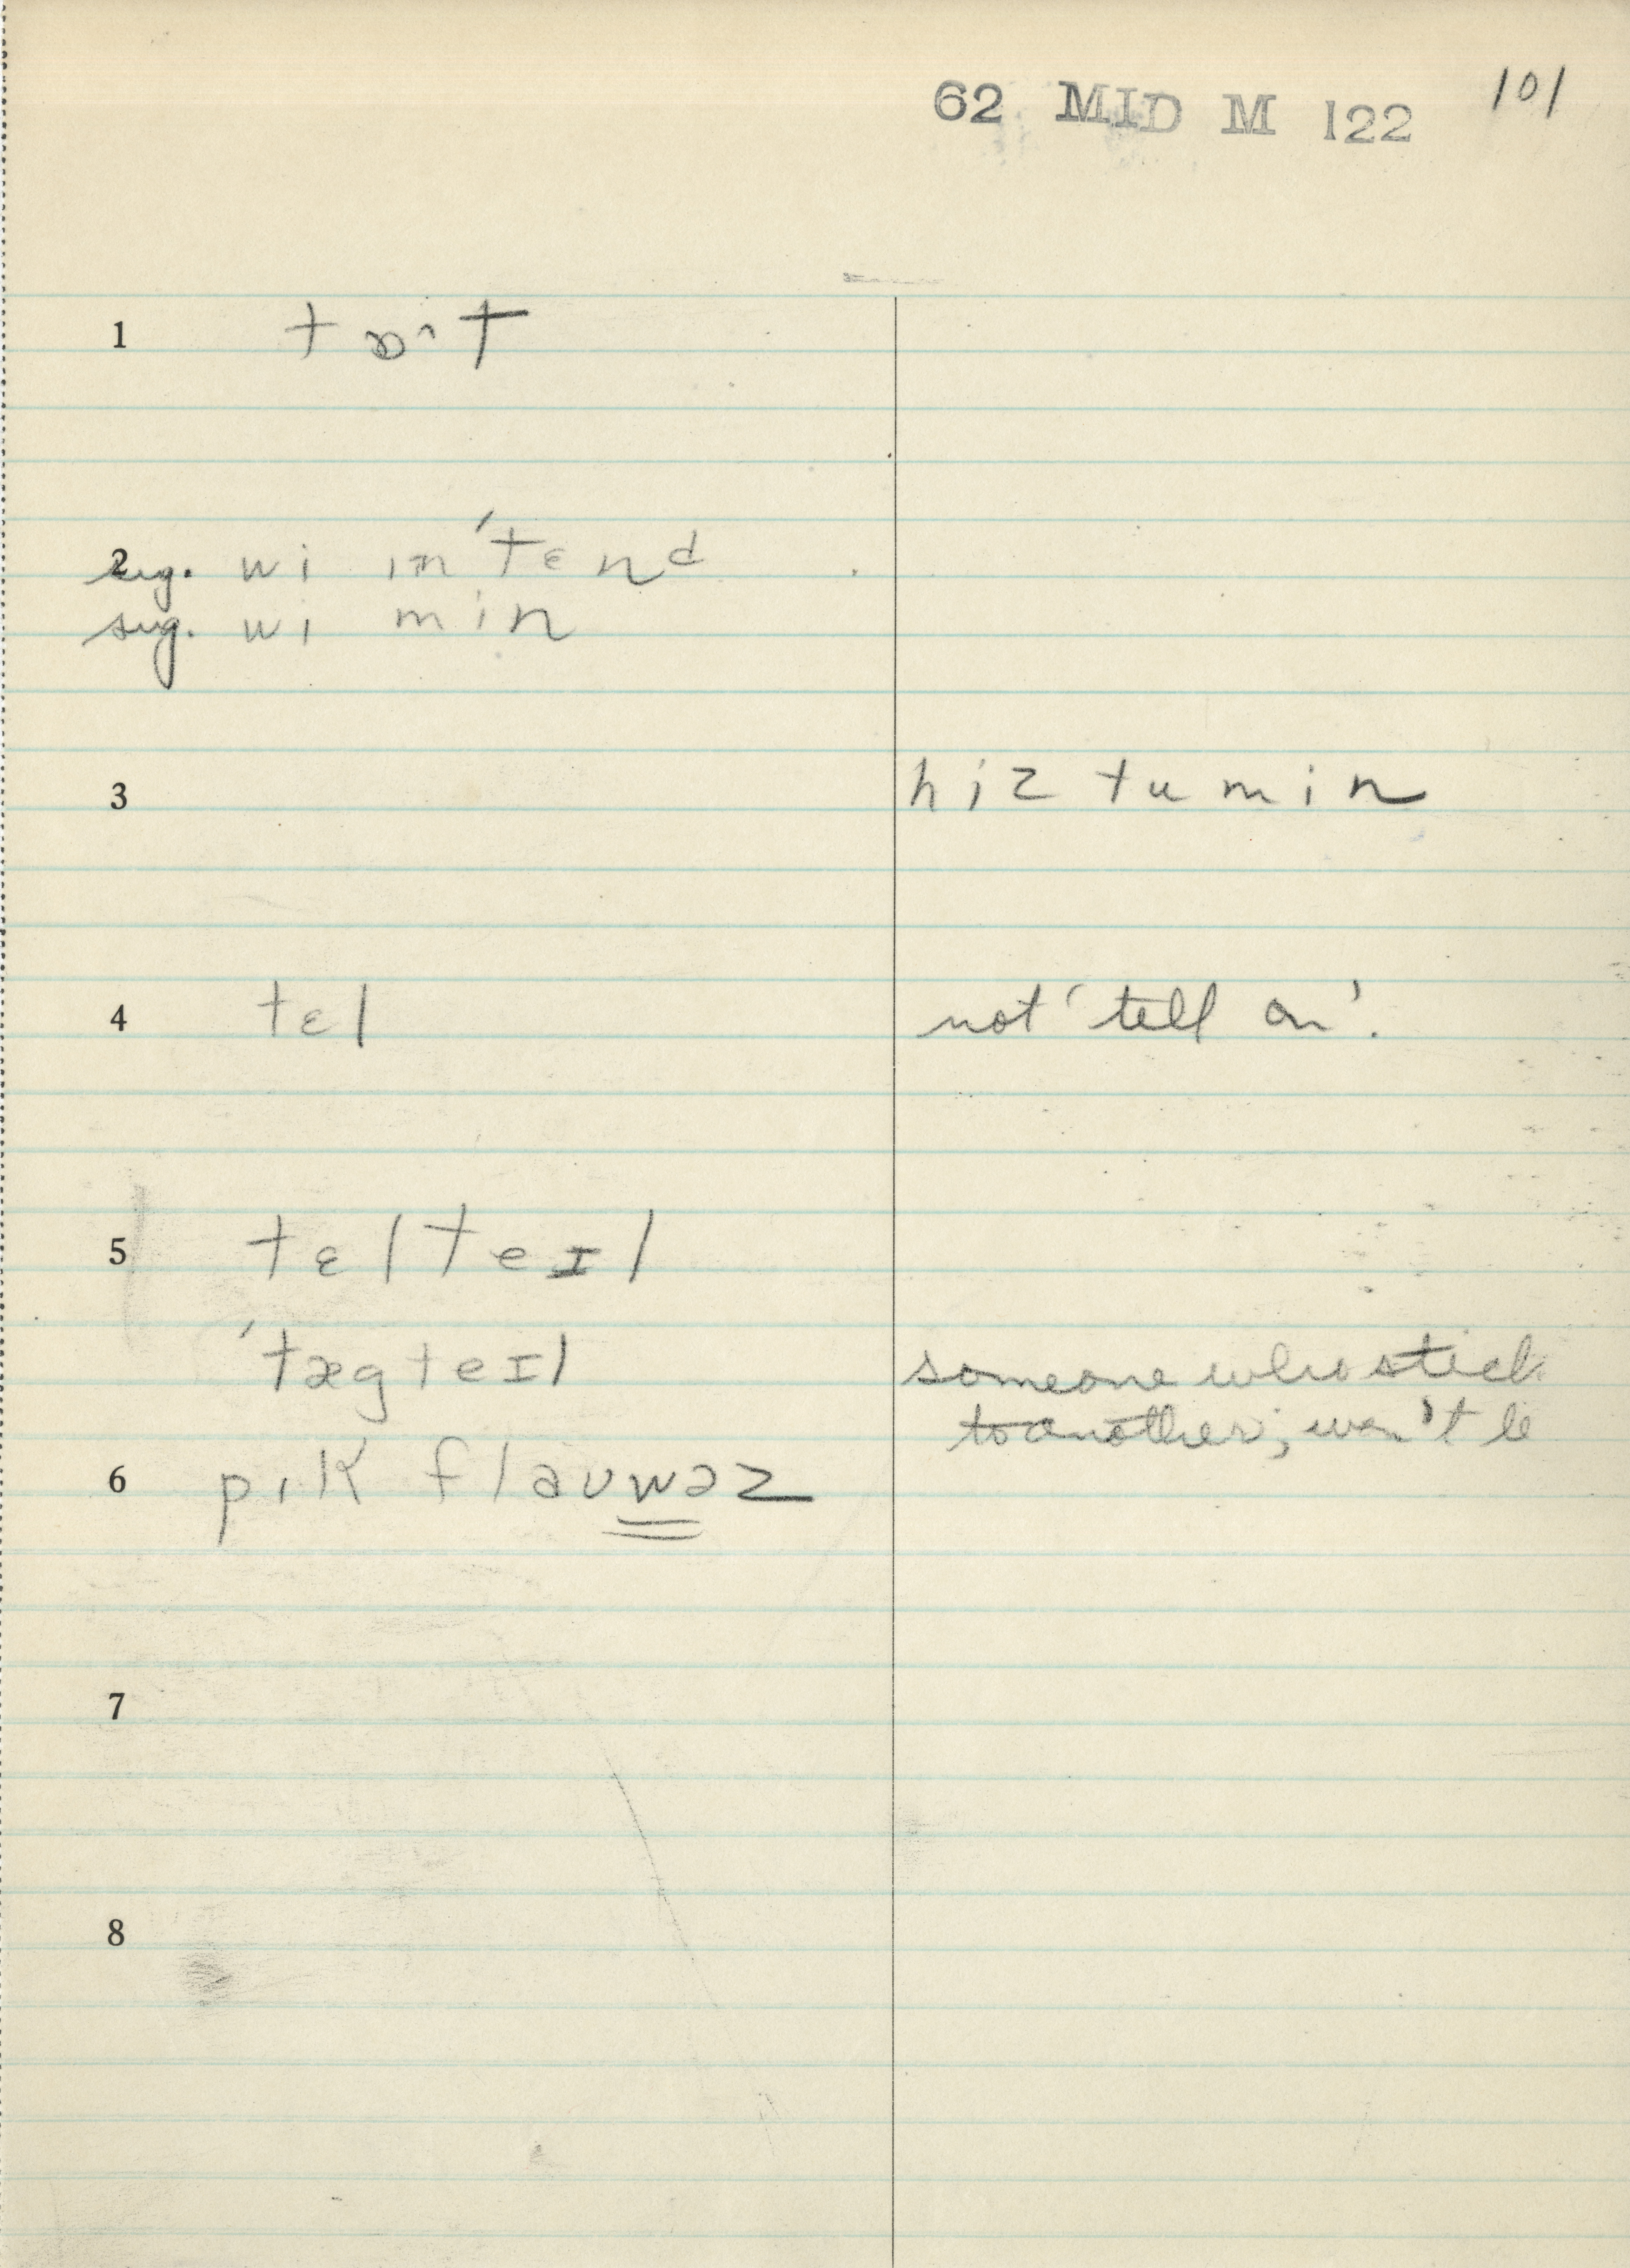 62 MID M 122 101
1 tɒ^t
2
sug. wi ɪnˈtɛnd
sug. wi min
3 hiz tu min
4 tɛl not 'tell on'.
5 tɛl teɪl
ˈtægteɪl someone who stick
to another; won't le
6 pɪk flaʊwəz
7
8